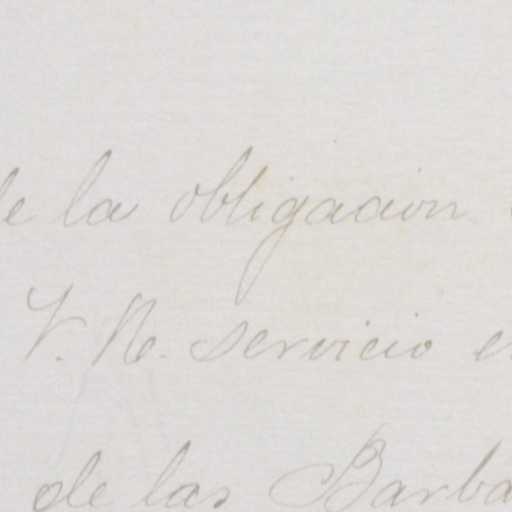 de la obligacion
V. N. servicio en
de las Barba